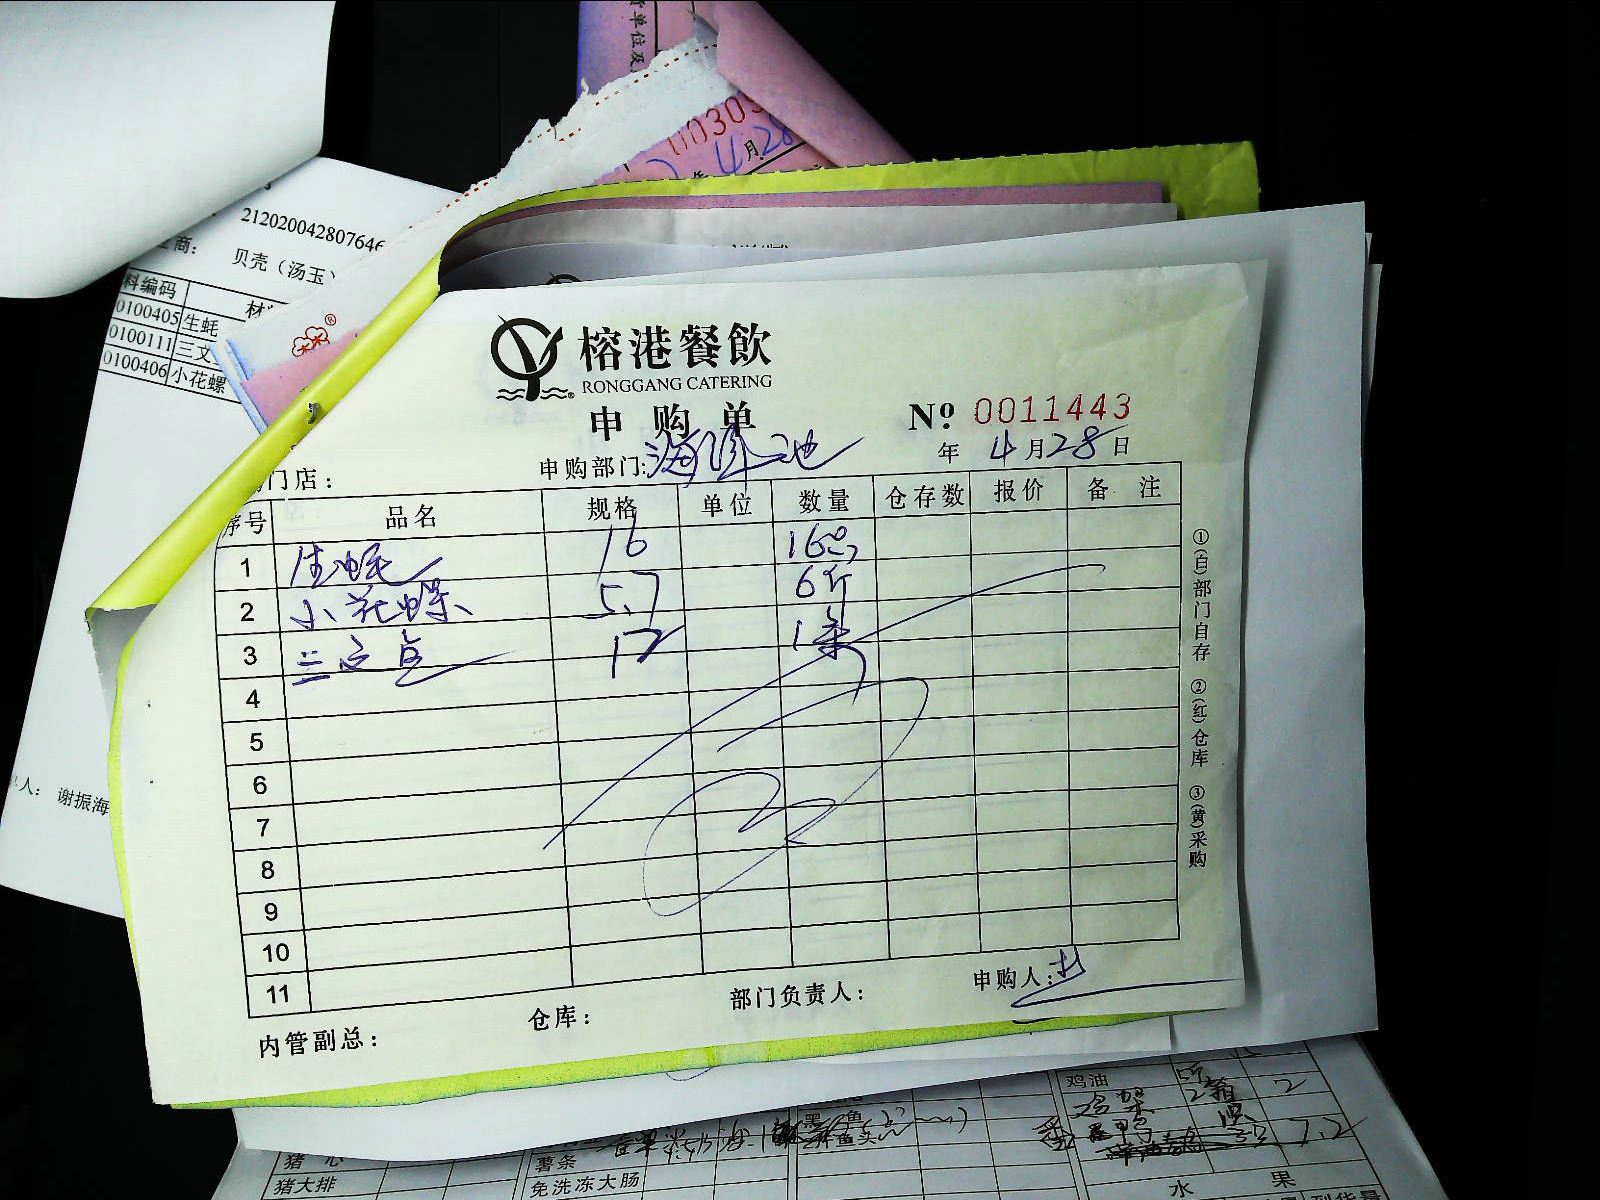 货单位及
00303
4月28
212020042807646
商: 贝壳（汤玉）
料编码 材
0100405 生蚝
0100111 三文
0100406 小花螺
人: 谢振海
榕港餐飲
RONGGANG CATERING
申购单
Nº 0011443
门店: 申购部门: 年 4月28日
序号 品名 规格 单位 数量 仓存数 报价 备 注
1 生蚝 16 16只
2 小花螺 5.7 6斤
3 三文鱼 17 1条
4
5
6
7
8
9
10
11
①(白)部门自存 ②(红)仓库 ③(黄)采购
内管副总: 仓库: 部门负责人: 申购人:
鸡油
猪心 薯条
猪大排 免洗冻大肠 水 果